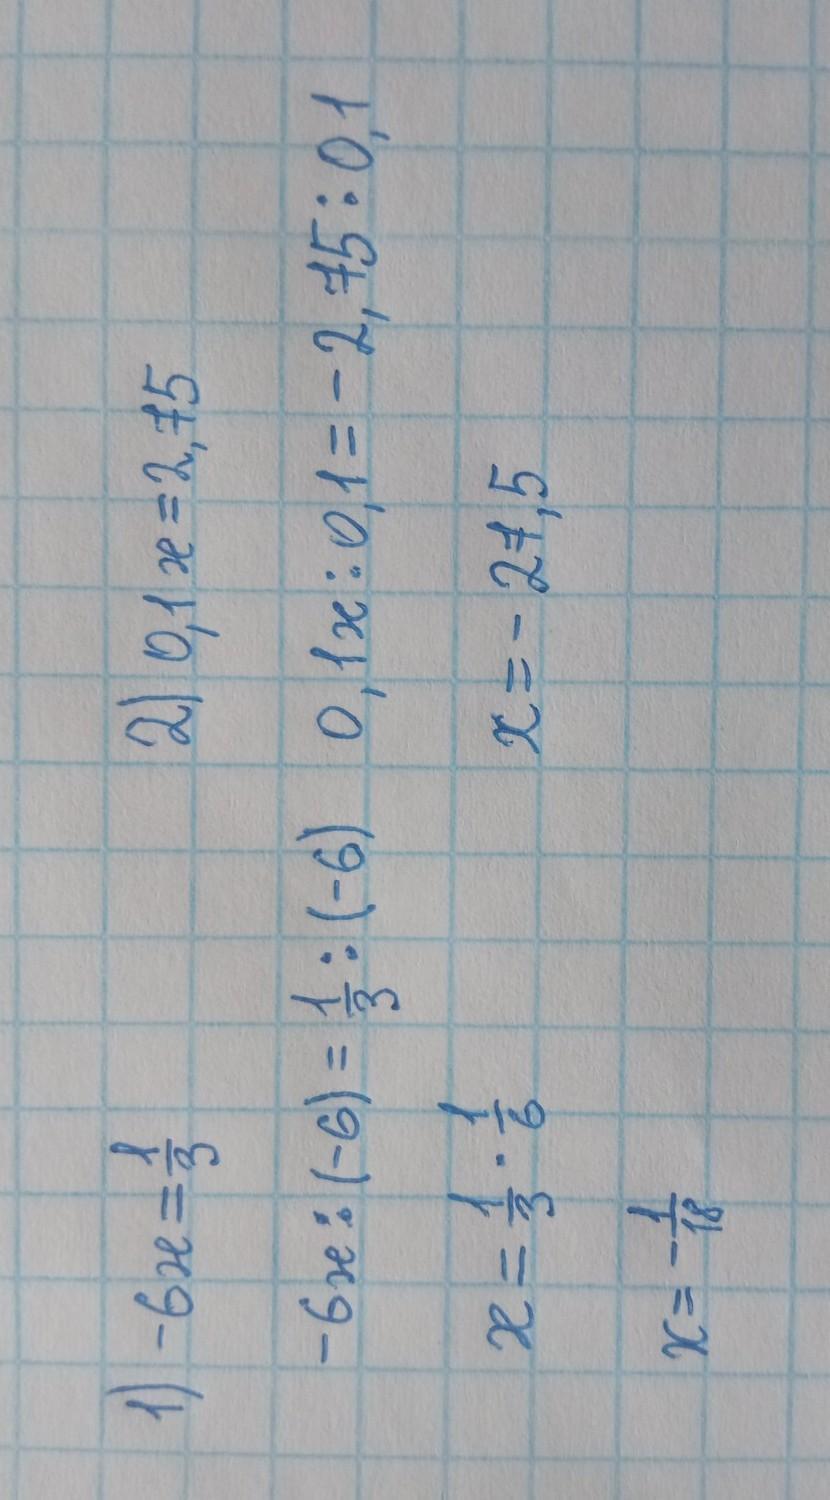 1) -6x = 1/3
-6x : (-6) = 1/3 : (-6)
x = 1/3 · 1/6
x = -1/18
2) 0,1x = 2,75
0,1x : 0,1 = -2,75 : 0,1
x = -27,5